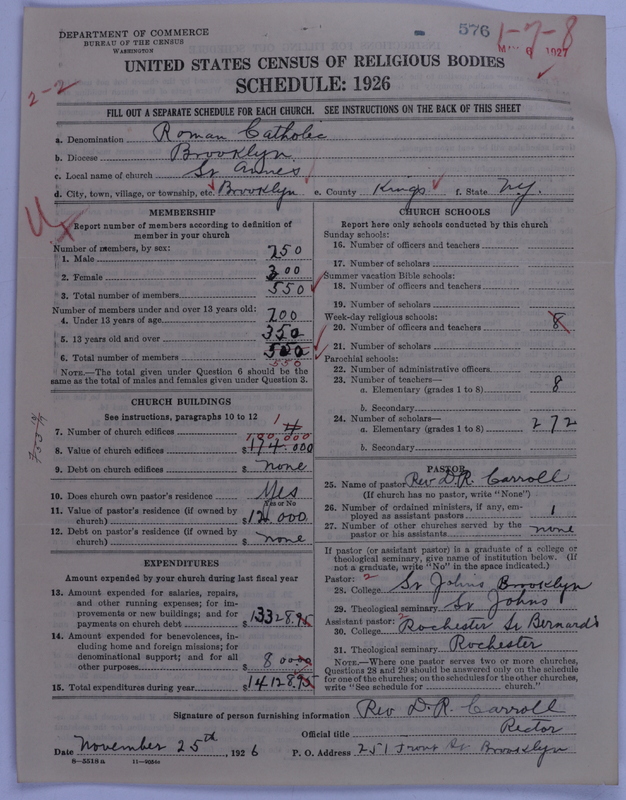 DEPARTMENT OF COMMERCE
BUREAU OF THE CENSUS
WASHINGTON
576
1-7-8
1927
2-2
UNITED STATES CENSUS OF RELIGIOUS BODIES
SCHEDULE: 1926
FILL OUT A SEPARATE SCHEDULE FOR EACH CHURCH. SEE INSTRUCTIONS ON THE BACK OF THIS SHEET
a. Denomination Roman Catholic
b. Diocese Brooklyn
c. Local name of church St Annes
d. City, town, village, or township, etc. Brooklyn e. County Kings f. State N.Y.
MEMBERSHIP
Report number of members according to definition of
member in your church
Number of members, by sex:
1. Male 250
2. Female 300
3. Total number of members 550
Number of members under and over 13 years old:
4. Under 13 years of age 200
5. 13 years old and over 350
6. Total number of members 550
550
NOTE.—The total given under Question 6 should be the
same as the total of males and females given under Question 3.
CHURCH BUILDINGS
See instructions, paragraphs 10 to 12
7. Number of church edifices 1
100,000
8. Value of church edifices $174.000
9. Debt on church edifices $ none
10. Does church own pastor's residence Yes
Yes or No
11. Value of pastor's residence (if owned by
church) $12 000
12. Debt on pastor's residence (if owned by
church) $ none
EXPENDITURES
Amount expended by your church during last fiscal year
13. Amount expended for salaries, repairs,
and other running expenses; for im-
provements or new buildings; and for
payments on church debt $13328.95
14. Amount expended for benevolences, in-
cluding home and foreign missions; for
denominational support; and for all
other purposes $ 800
15. Total expenditures during year $14128.95
CHURCH SCHOOLS
Report here only schools conducted by this church
Sunday schools:
16. Number of officers and teachers
17. Number of scholars
Summer vacation Bible schools:
18. Number of officers and teachers
19. Number of scholars
Week-day religious schools:
20. Number of officers and teachers 8
21. Number of scholars
Parochial schools:
22. Number of administrative officers
23. Number of teachers—
a. Elementary (grades 1 to 8) 8
b. Secondary
24. Number of scholars—
a. Elementary (grades 1 to 8) 272
b. Secondary
PASTOR
25. Name of pastor Rev D.R. Carroll
(If church has no pastor, write "None")
26. Number of ordained ministers, if any, em-
ployed as assistant pastors 1
27. Number of other churches served by the
pastor or his assistants none
If pastor (or assistant pastor) is a graduate of a college or
theological seminary, give name of institution below. (If
not a graduate, write "No" in the space indicated.)
Pastor: 2
28. College St Johns Brooklyn
29. Theological seminary St Johns
Assistant pastor: 2
30. College Rochester St Bernards
31. Theological seminary Rochester
NOTE.—Where one pastor serves two or more churches,
Questions 28 and 29 should be answered only on the schedule
for one of the churches; on the schedules for the other churches,
write "See schedule for church."
Signature of person furnishing information Rev D.R. Carroll
Official title Rector
Date November 25th, 1926 P. O. Address 251 Front St Brooklyn
8—5518a